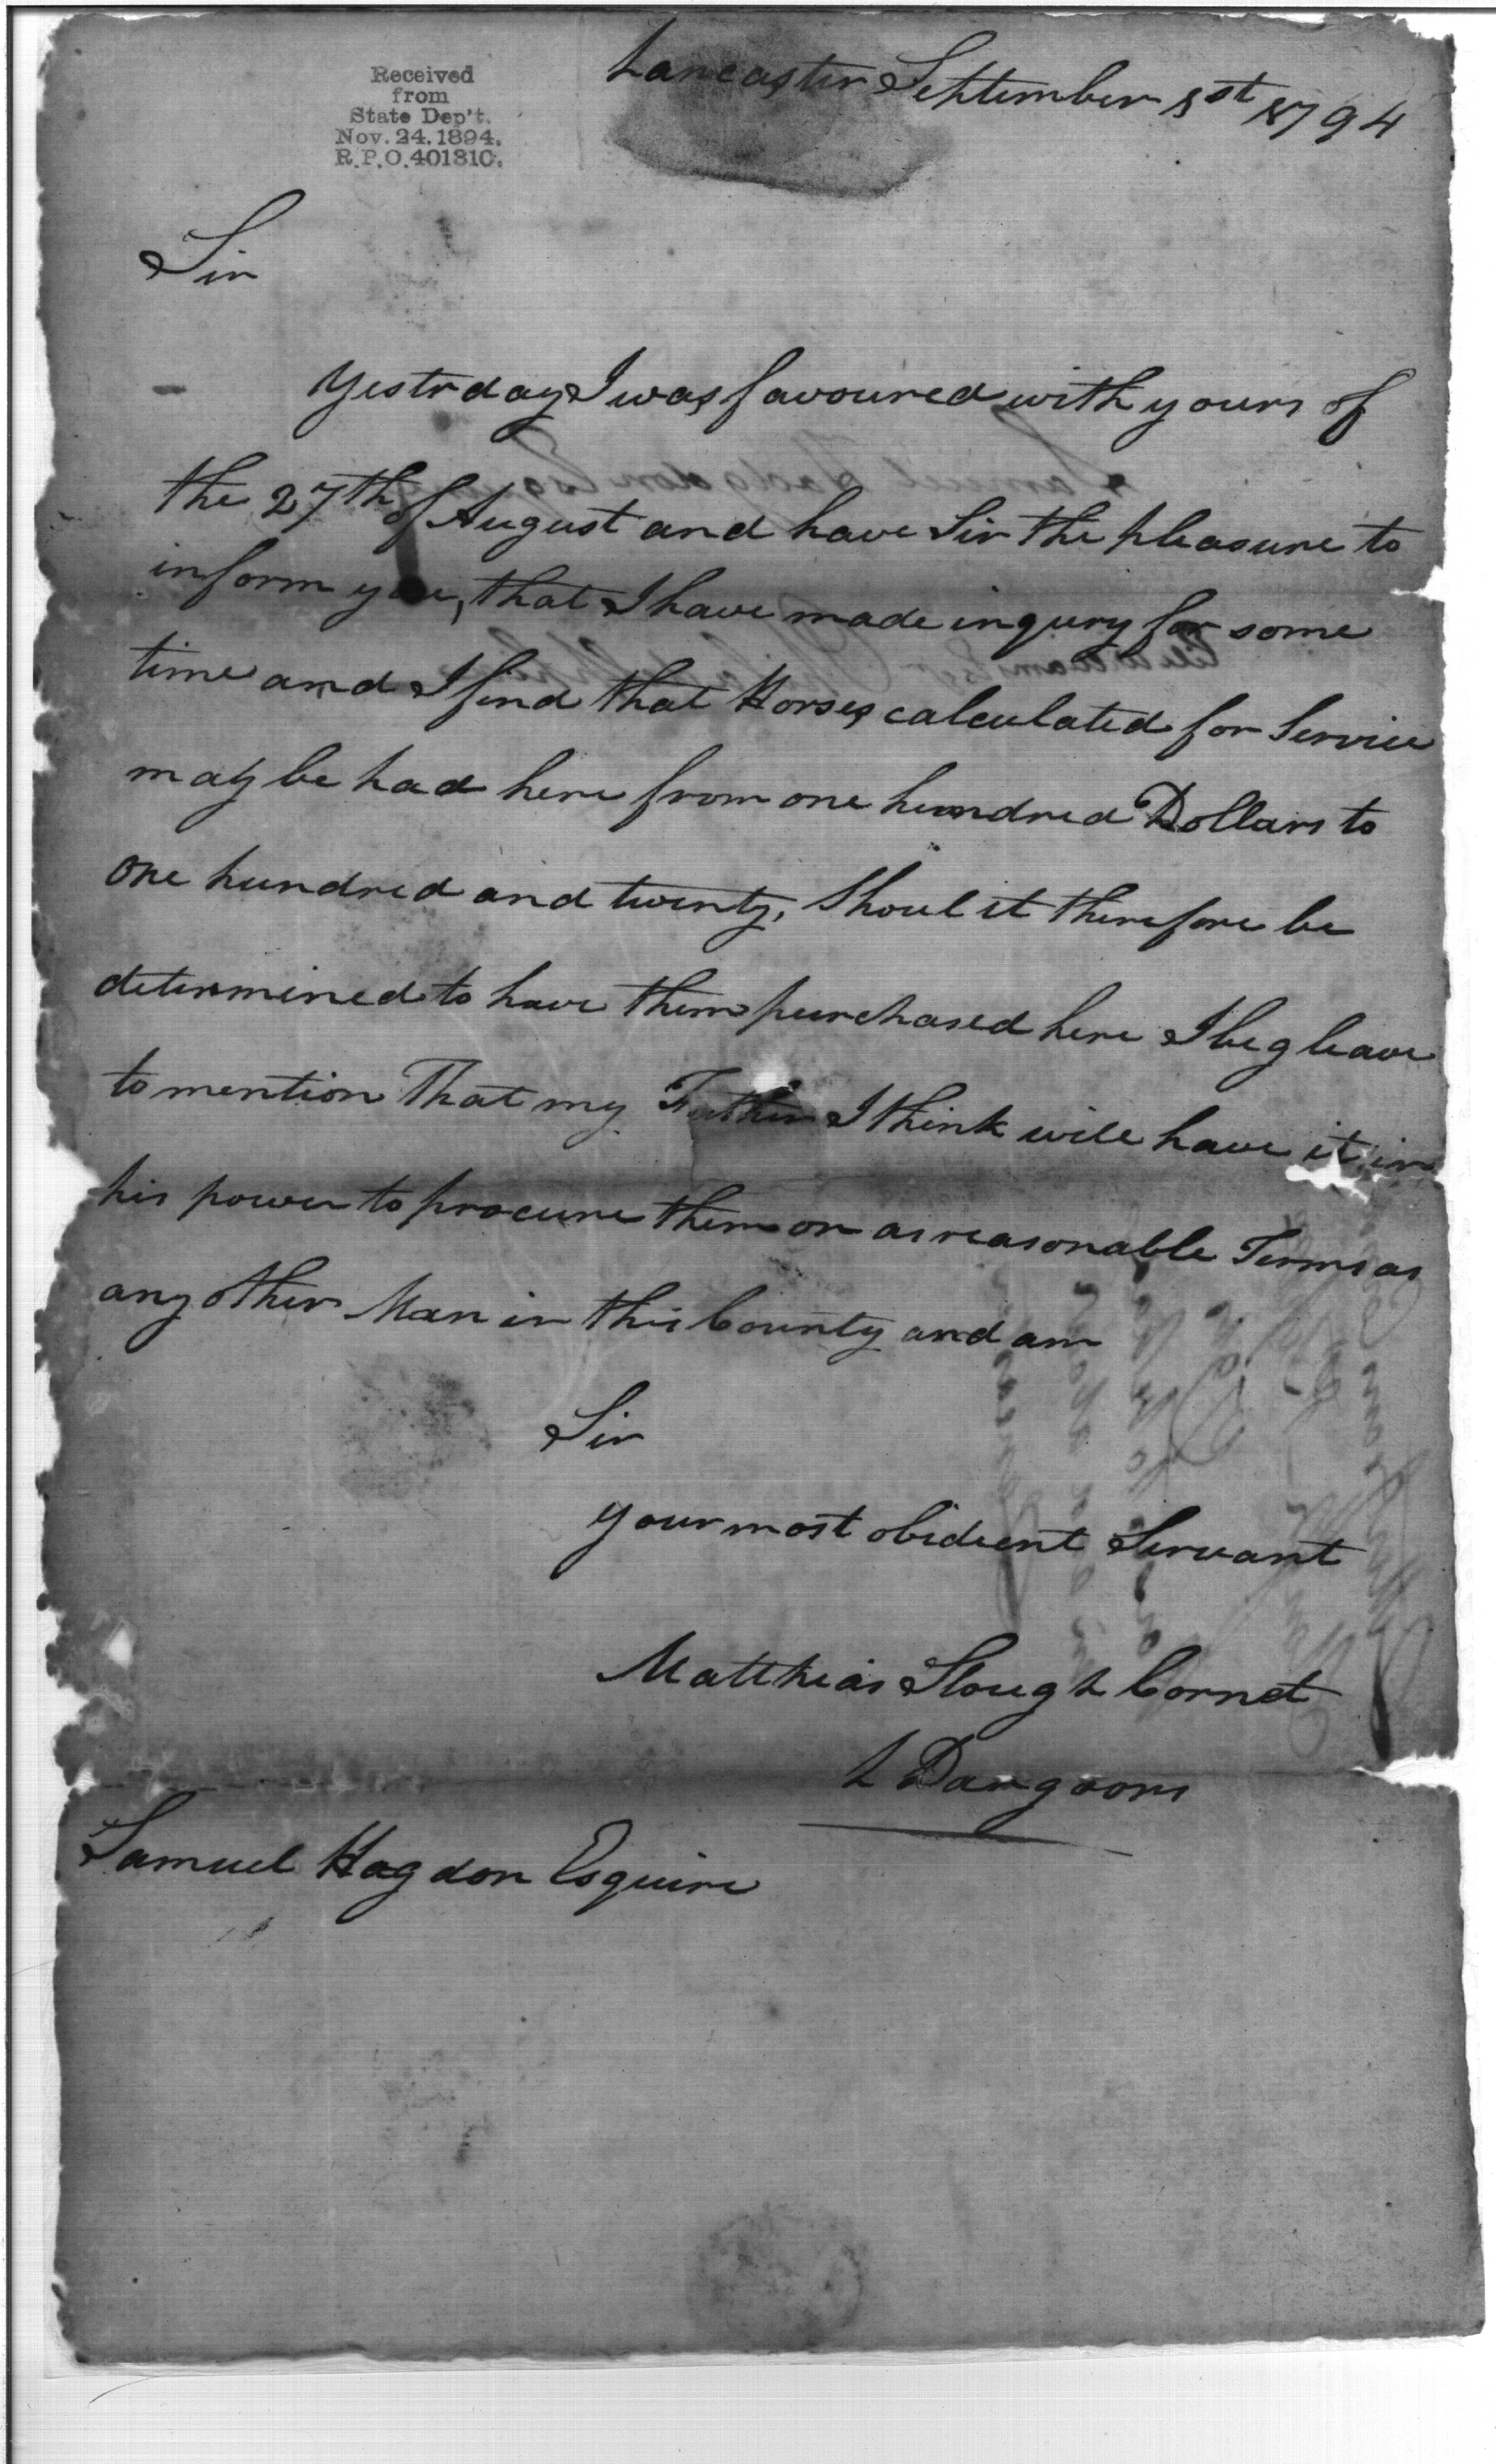 Received
from
State Dep't.
Nov. 24. 1894.
R.P.O. 401810.
Lancaster September 1st 1794
Sir
Yestrday I was favoured with yours of
the 27th of August and have Sir the pleasure to
inform you, that I have made inqury for some
time and I find that Horses calculated for Service
may be had here from one hundred Dollars to
one hundred and twenty, Shoul it therefore be
determined to have them purchased here I beg leave
to mention That my Father I think will have it in
his power to procure them on as reasonable Terms as
any other Man in this County and am
Sir
your most obedient Servant
Matthias Slough Cornet
L Dargoons
Samuel Hagdon Esquire